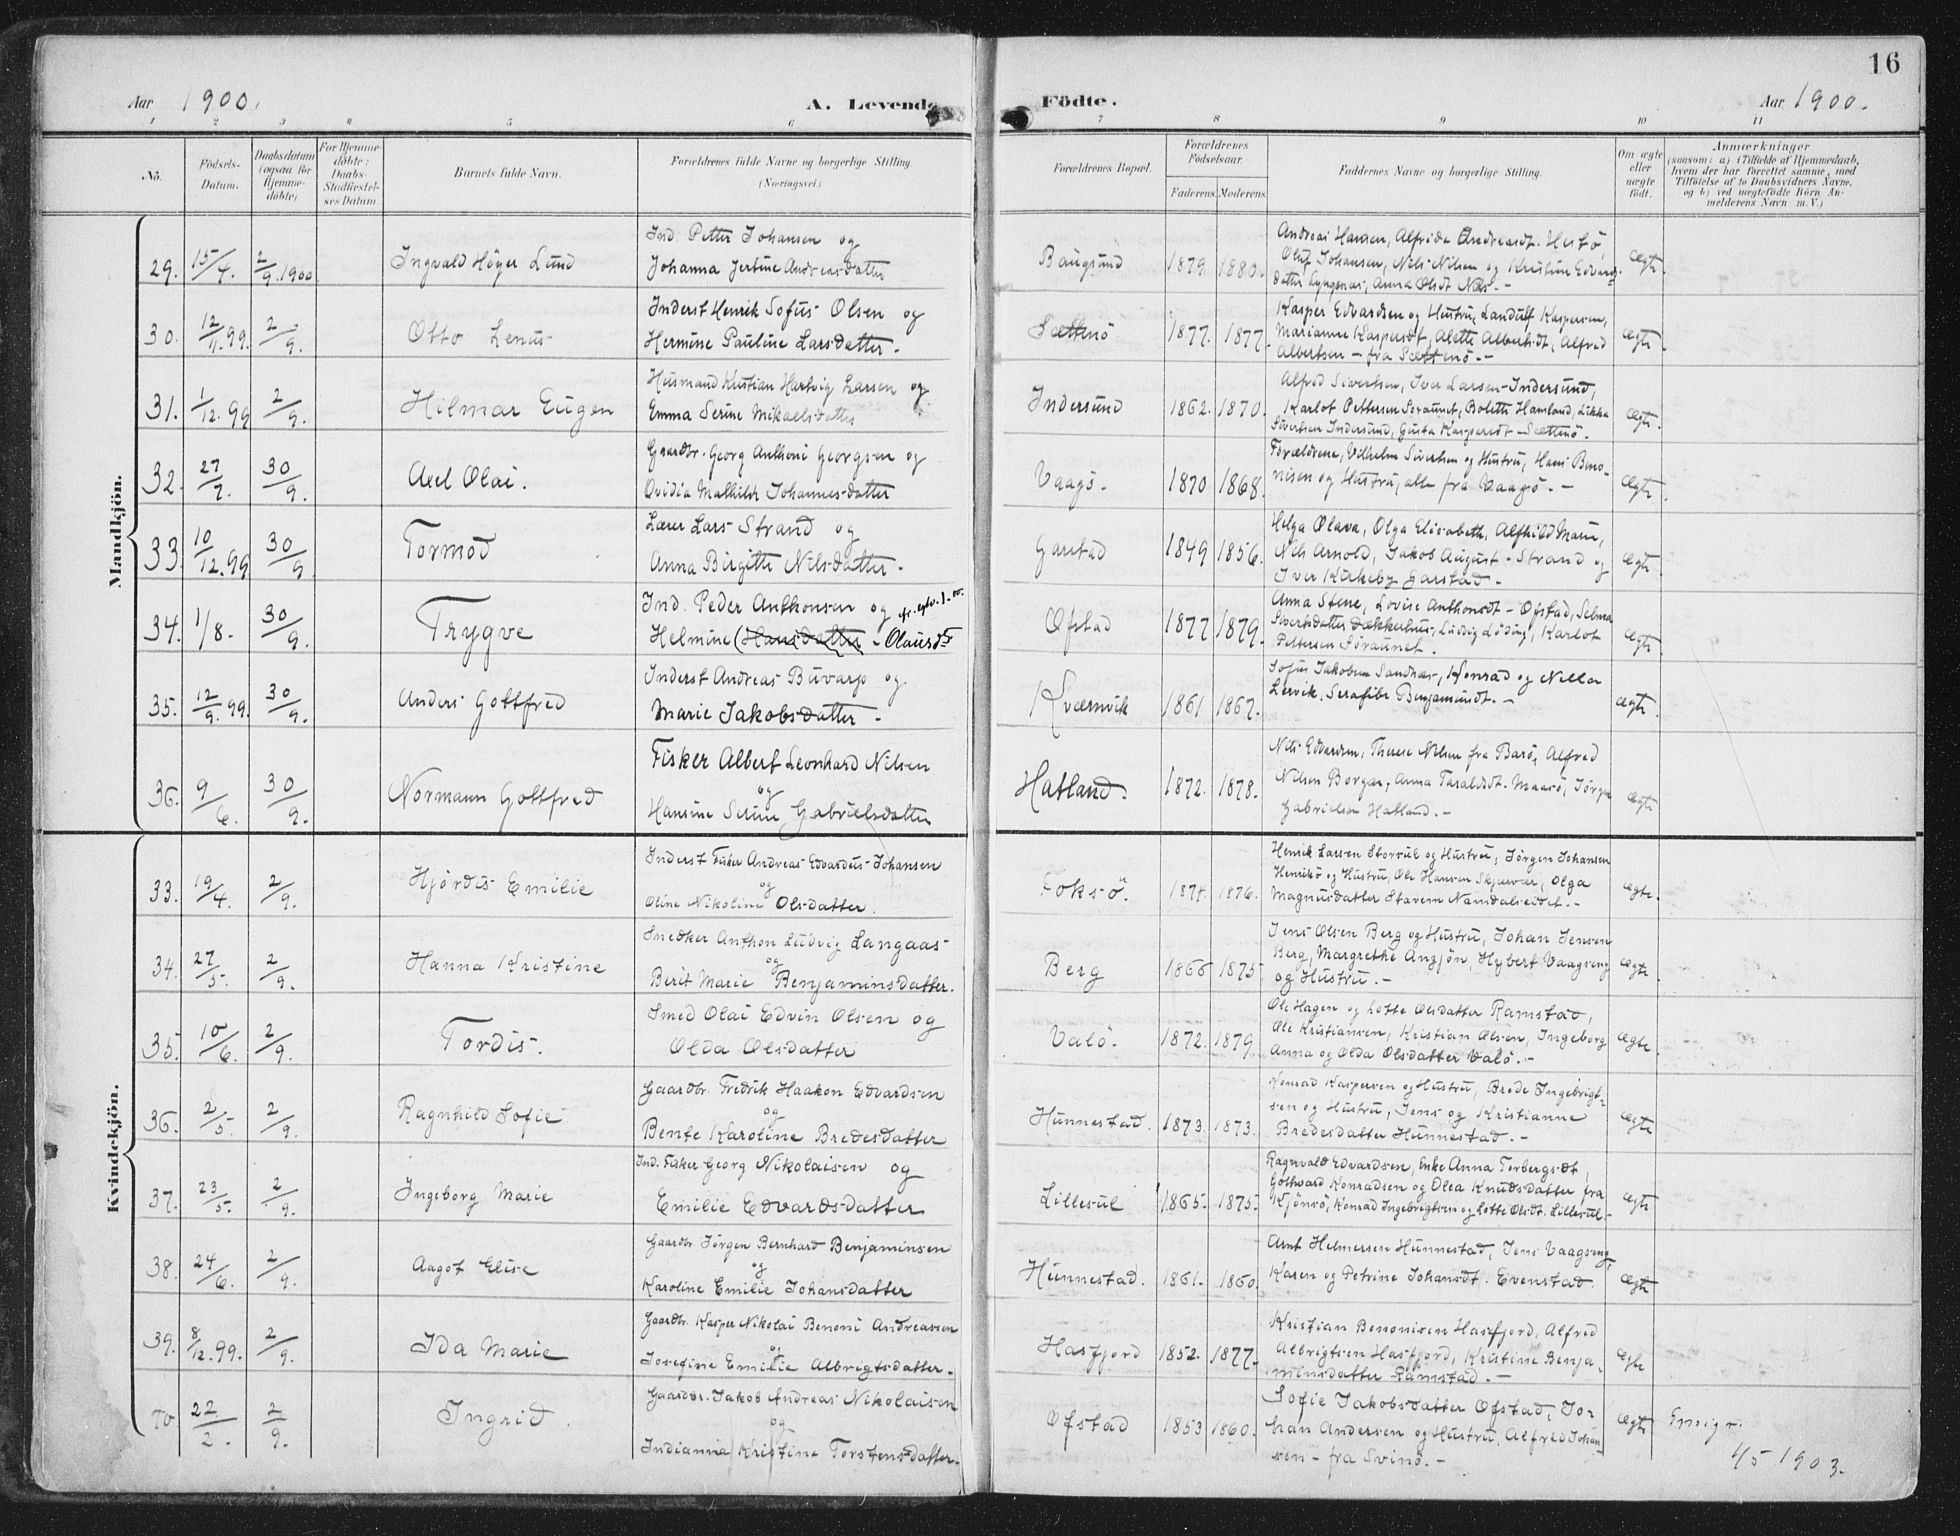 16
Aar 1900.
A. Levende
Födte.
Aar 1900.
1 2 3 4 5 6 7 8 9 10 11
No.
Födsels-Datum.
Daabsdatum (ogsaa for Hjemme-döbte)
For Hjemme-döbte: Daabs-Stadfæstel-ses Datum.
Barnets fulde Navn.
Forældrenes fulde Navne og borgerlige Stilling
(Næringsvei)
Forældrenes Bopæl.
Forældrenes Födselsaar.
Faderens Moderens
Faddernes Navne og borgerlige Stilling.
Om ægte eller uægte födt.
Anmærkninger
(saasom: a) i Tilfælde af Hjemmedaab,
hvem der har forrettet samme, med
Tilföielse af to Daabsvidners Navne,
og b) ved uægtefödte Börn An-
melderens Navn m. V.)
Mandkjön.
29. 15/4. 2/9. 1900 Ingvald Höyer Lund
Ind. Petter Johansen og
Johanna Jertine Andreasdatter
Baugsund 1879 1880.
Andreas Hansen, Alfrida Andreasdt. Hestö,
Oluf Johansen, Nils Nilsen og Kristine Edvards-
datter Lyngsnes, Anna Olsdt
Ægte.
30. 12/11.99. 2/9. Otto Lenus
Inderst Henrik Sofus Olsen og
Hermine Pauline Larsdatter.
Sættenö 1877. 1877.
Kasper Edvardsen og Hustru, Landulf Kaspersen,
Marianne Kaspersdt, Alette Albertsdt, Alfred
Albertsen - fra Sættenö.-
Ægte.
31. 1/12.99 2/9. Hilmar Eugen
Husmand Kristian Hartvig Larsen og
Emma Serine Mikaelsdatter
Indersund 1862. 1870.
Alfred Sivertsen, Iver Larsen Indersund,
Karlot Pettersen Söraunet, Bolette Hamland, Likka
Sivertsen Indersund, Gusta Kaspersdt Sættenö.
Ægte.
32. 27/7. 30/9. Axel Olai.
Gaardbr. Georg Anthoni Georgsen og
Ovidia Mathilde Johannesdatter
Vaagö. 1870 1868.
Forældrene, Vilhelm Sivertsen og Hustru, Hans Beno-
nisen og Hustru, alle fra Vaagö.-
Ægte.
33. 10/12.99 30/9 Tormod
Lærer Lars Strand og
Anna Birgitte Nilsdatter.
Garstad 1849 1856.
Helga Olava, Olga Elisabeth, Alfhild Marie,
Nils Arnold, Jakob August - Strand og
Iver Kirkeby Garstad.
Ægte.
34. 1/8. 30/9. Trygve
Ind. Peder Anthonsen og
Helmine (Hansdatter - Olausdt
Ofstad 1877 1879.
Anna Stene, Lovise Anthonsdt - Ofstad, Selma
Sivertsdatter Dækkerhus, Ludvig Löding, Karlot
Pettersen Söraunet.
Ægte.
35. 12/9.99. 30/9. Anders Gottfred
Inderst Andreas Buvarp og
Marie Jakobsdatter.
Kværnvik 1861 1867.
Sofus Jakobsen Sandnes, Konrad og Nilla
Lervik, Serafine Benjaminsdt.-
Ægte.
36. 9/6. 30/9. Normann Gottfred
Fisker Albert Leonhard Nilsen
og
Hansine Serine Gabrielsdatter
Hatland. 1872. 1878.
Nils Edvardsen, Therese Nilsen fra Barö, Alfred
Nilsen Borgan, Anna Taraldsdt. Maasö, Jörgen
Gabrielsen Hatland.-
Ægte
Kvindekjön.
33. 19/4. 2/9. Hjördis Emilie
Inderst Fisker Andreas Edvardus Johansen
og
Oline Nikoline Olsdatter.
Foksö. 1874. 1876.
Henrik Larsen Storsul og Hustru, Jörgen Johansen
Henriksö og Hustru, Ole Hansen Skjærvær, Olga
Magnusdatter Stavem Namdalseidet.-
Ægte.
34. 27/5. 2/9. Hanna Kristine
Snedker Anthon Ludvig Langaas
og
Berit Marie Benjaminsdatter.
Berg 1866 1875
Jens Olsen Berg og Hustru, Johan Jensen
Berg, Margrethe Anzjön, Hybert Vaagseng
og Hustru.-
Ægte
35. 10/6. 2/9. Tordis.
Smed Olai Edvin Olsen og
Olda Olsdatter
Valö. 1872. 1879
Ole Hagen og Lotte Olsdatter Ramstad,
Ole Kristiansen, Kristian Olsen, Ingeborg
Anna og Olda Olsdatter Valö.-
Ægte.
36. 2/5. 2/9. Ragnhild Sofie
Gaardbr. Fredrik Haakon Edvardsen
og
Bente Karoline Bredesdatter
Hunnestad. 1873. 1873.
Konrad Kaspersen og Hustru, Brede Ingebrigt-
sen og Hustru, Jens og Kristianne
Bredesdatter Hunnestad.-
Ægte
37. 23/5. 2/9. Ingeborg Marie
Ind. Fisker Georg Nikolaisen og
Emilie Edvardsdatter
Lillesul 1865. 1875.
Ragnvald Edvardsen, Enke Anna Torbergsdt,
Gothvard Konradsen og Olea Knudsdatter fra
Kjönsö, Konrad Ingebrigtsen og Lotte Olsdt. Lillesul-
Ægte
38. 24/6. 2/9. Aagot Elise
Gaardbr. Jörgen Bernhard Benjaminsen
og
Karoline Emilie Johansdatter
Hunnestad. 1861. 1860.
Arnt Helmersen Hunnestad, Jens Vaagseng,
Karen og Petrine Johansdt. Evenstad.
Ægte
39. 8/12.99. 2/9. Ida Marie
Gaardbr. Kasper Nikolai Benoni Andreassen
og
Josefine Emilie Albrigtsdatter.
Hasfjord 1852. 1877.
Kristian Benonisen Hasfjord, Alfred
Albrigtsen Hasfjord, Kristine Benja-
minsdatter Ramstad.-
Ægte
40 22/2. 2/9. Ingrid.
Gaardbr. Jakob Andreas Nikolaisen
og
Indianna Kristine Torstensdatter.
Ofstad 1853 1860.
Sofie Jakobsdatter Ofstad, Jo-
han Andersen og Hustru, Alfred Johan-
sen - fra Svinö.-
Ægte
Emigr.
4/5 1903.